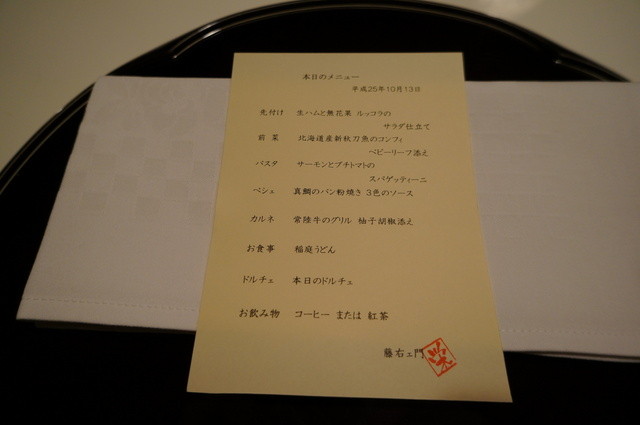 本日のメニュー
平成25年10月13日
先付け 生ハムと無花果 ルッコラの
サラダ仕立て
前菜 北海道産新秋刀魚のコンフィ
ベビーリーフ添え
パスタ サーモンとプチトマトの
スパゲッティーニ
ペシュ 真鯛のパン粉焼き 3色のソース
カルネ 常陸牛のグリル 柚子胡椒添え
お食事 稲庭うどん
ドルチェ 本日のドルチェ
お飲み物 コーヒー または 紅茶
藤右ェ門